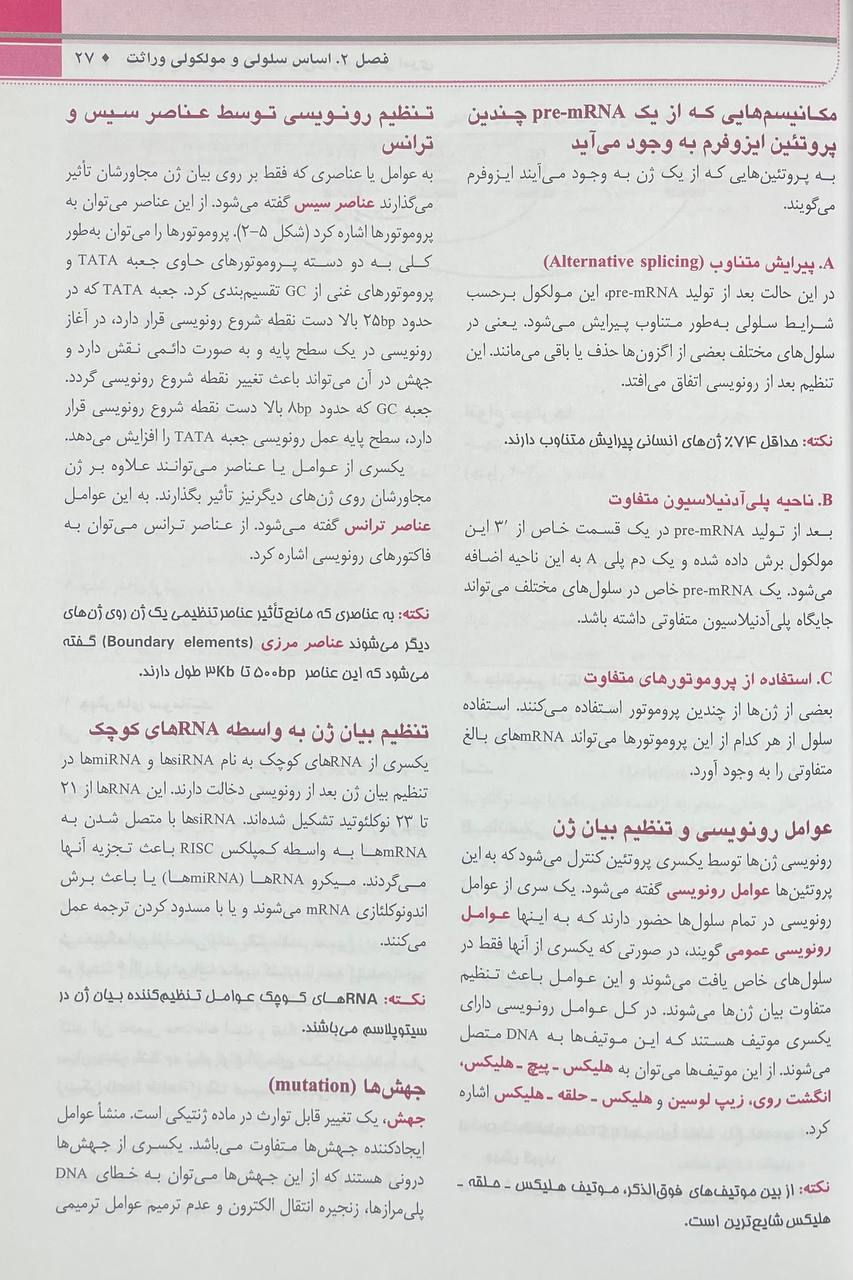 فصل ۲. اساس سلولی و مولکولی وراثت ♦ ۲۷
مکانیسم‌هایی که از یک pre-mRNA چندین
پروتئین ایزوفرم به وجود می‌آید
به پروتئین‌هایی که از یک ژن به وجود می‌آیند ایزوفرم
می‌گویند.
A. پیرایش متناوب (Alternative splicing)
در این حالت بعد از تولید pre-mRNA، این مولکول برحسب
شرایط سلولی به‌طور متناوب پیرایش می‌شود. یعنی در
سلول‌های مختلف بعضی از اگزون‌ها حذف یا باقی می‌مانند. این
تنظیم بعد از رونویسی اتفاق می‌افتد.
نکته: حداقل ۷۴٪ ژن‌های انسانی پیرایش متناوب دارند.
B. ناحیه پلی‌آدنیلاسیون متفاوت
بعد از تولید pre-mRNA در یک قسمت خاص از ′۳ این
مولکول برش داده شده و یک دم پلی A به این ناحیه اضافه
می‌شود. یک pre-mRNA خاص در سلول‌های مختلف می‌تواند
جایگاه پلی‌آدنیلاسیون متفاوتی داشته باشد.
C. استفاده از پروموتورهای متفاوت
بعضی از ژن‌ها از چندین پروموتور استفاده می‌کنند. استفاده
سلول از هر کدام از این پروموتورها می‌تواند mRNAهای بالغ
متفاوتی را به وجود آورد.
عوامل رونویسی و تنظیم بیان ژن
رونویسی ژن‌ها توسط یکسری پروتئین کنترل می‌شود که به این
پروتئین‌ها عوامل رونویسی گفته می‌شود. یک سری از عوامل
رونویسی در تمام سلول‌ها حضور دارند که به اینها عوامل
رونویسی عمومی گویند، در صورتی که یکسری از آنها فقط در
سلول‌های خاص یافت می‌شوند و این عوامل باعث تنظیم
متفاوت بیان ژن‌ها می‌شوند. در کل عوامل رونویسی دارای
یکسری موتیف هستند که این موتیف‌ها به DNA متصل
می‌شوند. از این موتیف‌ها می‌توان به هلیکس ـ پیچ ـ هلیکس،
انگشت روی، زیپ لوسین و هلیکس ـ حلقه ـ هلیکس اشاره
کرد.
نکته: از بین موتیف‌های فوق‌الذکر، موتیف هلیکس ـ حلقه ـ
هلیکس شایع‌ترین است.
تنظیم رونویسی توسط عناصر سیس و
ترانس
به عوامل یا عناصری که فقط بر روی بیان ژن مجاورشان تأثیر
می‌گذارند عناصر سیس گفته می‌شود. از این عناصر می‌توان به
پروموتورها اشاره کرد (شکل ۵-۲). پروموتورها را می‌توان به‌طور
کلی به دو دسته پروموتورهای حاوی جعبه TATA و
پروموتورهای غنی از GC تقسیم‌بندی کرد. جعبه TATA که در
حدود ۲۵bp بالا دست نقطه شروع رونویسی قرار دارد، در آغاز
رونویسی در یک سطح پایه و به صورت دائمی نقش دارد و
جهش در آن می‌تواند باعث تغییر نقطه شروع رونویسی گردد.
جعبه GC که حدود ۸bp بالا دست نقطه شروع رونویسی قرار
دارد، سطح پایه عمل رونویسی جعبه TATA را افزایش می‌دهد.
یکسری از عوامل یا عناصر می‌توانند علاوه بر ژن
مجاورشان روی ژن‌های دیگرنیز تأثیر بگذارند. به این عوامل
عناصر ترانس گفته می‌شود. از عناصر ترانس می‌توان به
فاکتورهای رونویسی اشاره کرد.
نکته: به عناصری که مانع تأثیر عناصر تنظیمی یک ژن روی ژن‌های
دیگر می‌شوند عناصر مرزی (Boundary elements) گفته
می‌شود که این عناصر ۵۰۰bp تا ۳Kb طول دارند.
تنظیم بیان ژن به واسطه RNAهای کوچک
یکسری از RNAهای کوچک به نام siRNAها و miRNAها در
تنظیم بیان ژن بعد از رونویسی دخالت دارند. این RNAها از ۲۱
تا ۲۳ نوکلئوتید تشکیل شده‌اند. siRNAها با متصل شدن به
mRNAها به واسطه کمپلکس RISC باعث تجزیه آنها
می‌گردند. میکرو RNAها (miRNAها) یا باعث برش
اندونوکلئازی mRNA می‌شوند و یا با مسدود کردن ترجمه عمل
می‌کنند.
نکته: RNAهای کوچک عوامل تنظیم‌کننده بیان ژن در
سیتوپلاسم می‌باشند.
جهش‌ها (mutation)
جهش، یک تغییر قابل توارث در ماده ژنتیکی است. منشأ عوامل
ایجادکننده جهش‌ها متفاوت می‌باشد. یکسری از جهش‌ها
درونی هستند که از این جهش‌ها می‌توان به خطای DNA
پلی‌مرازها، زنجیره انتقال الکترون و عدم ترمیم عوامل ترمیمی